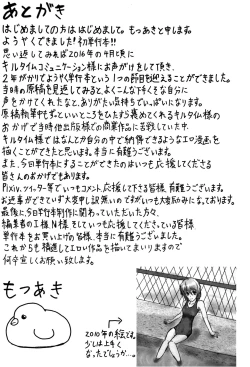 あとがき
はじめましての方ははじめまして。もつあきと申します。
ようやくできました!初単行本!!
思い返してみれば2016年の4月頃に
キルタイムコミュニケーション様にお声がけをして頂き、
2年がかりでようやく単行本という1つの節目を迎えることができました。
当時の原稿を見返してみると、よくこんな下手くそな自分に
声をかけてくれたなと、ありがたい気持ちでいっぱいになります。
おかげで当時他出版様での商業作品に苦戦していた中、
キルタイム様ではなんとか自分の中で納得できるようなエロ漫画を
描くことができたと思います。本当に有難うございます。
また、今回単行本にすることができたのはいつも応援してくださる
皆さんのおかげでもあります。
Pixiv、ツイッター等でいつもコメント、応援して下さる皆様、有難うございます。
お返事ができていず大変申し訳無いのですがいつも大変励みになっております。
最後に、今回単行本制作に関わっていただいた方々、
編集者のI様、N様そしていつも応援してくださっている皆様
単行本をお買い上げの皆様、本当に有難うございました。
これからも精進してエロい作品を描いてまいりますので
何卒宜しくお願い致します。
もつあき
2010年の絵です。
少しは上手く
なったでしょうか…。